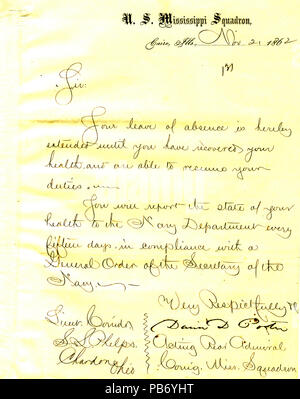 U. S. Mississippi Squadron,
Cairo, Ills, Nov. 2, 1862
Sir:
Your leave of absence is hereby
extended until you have recovered your
health, and are able to resume your
duties.
You will report the state of your
health to the Navy Department every
fifteen days, in compliance with a
General Order of the Secretary of the
Navy.
Very Respectfully
Lieut. Comdr.
S. L. Phelps.
Chardon,
Ohio
David D. Porter
Acting Rear Admiral
Comdg. Miss. Squadron
alamy
PB6YHT